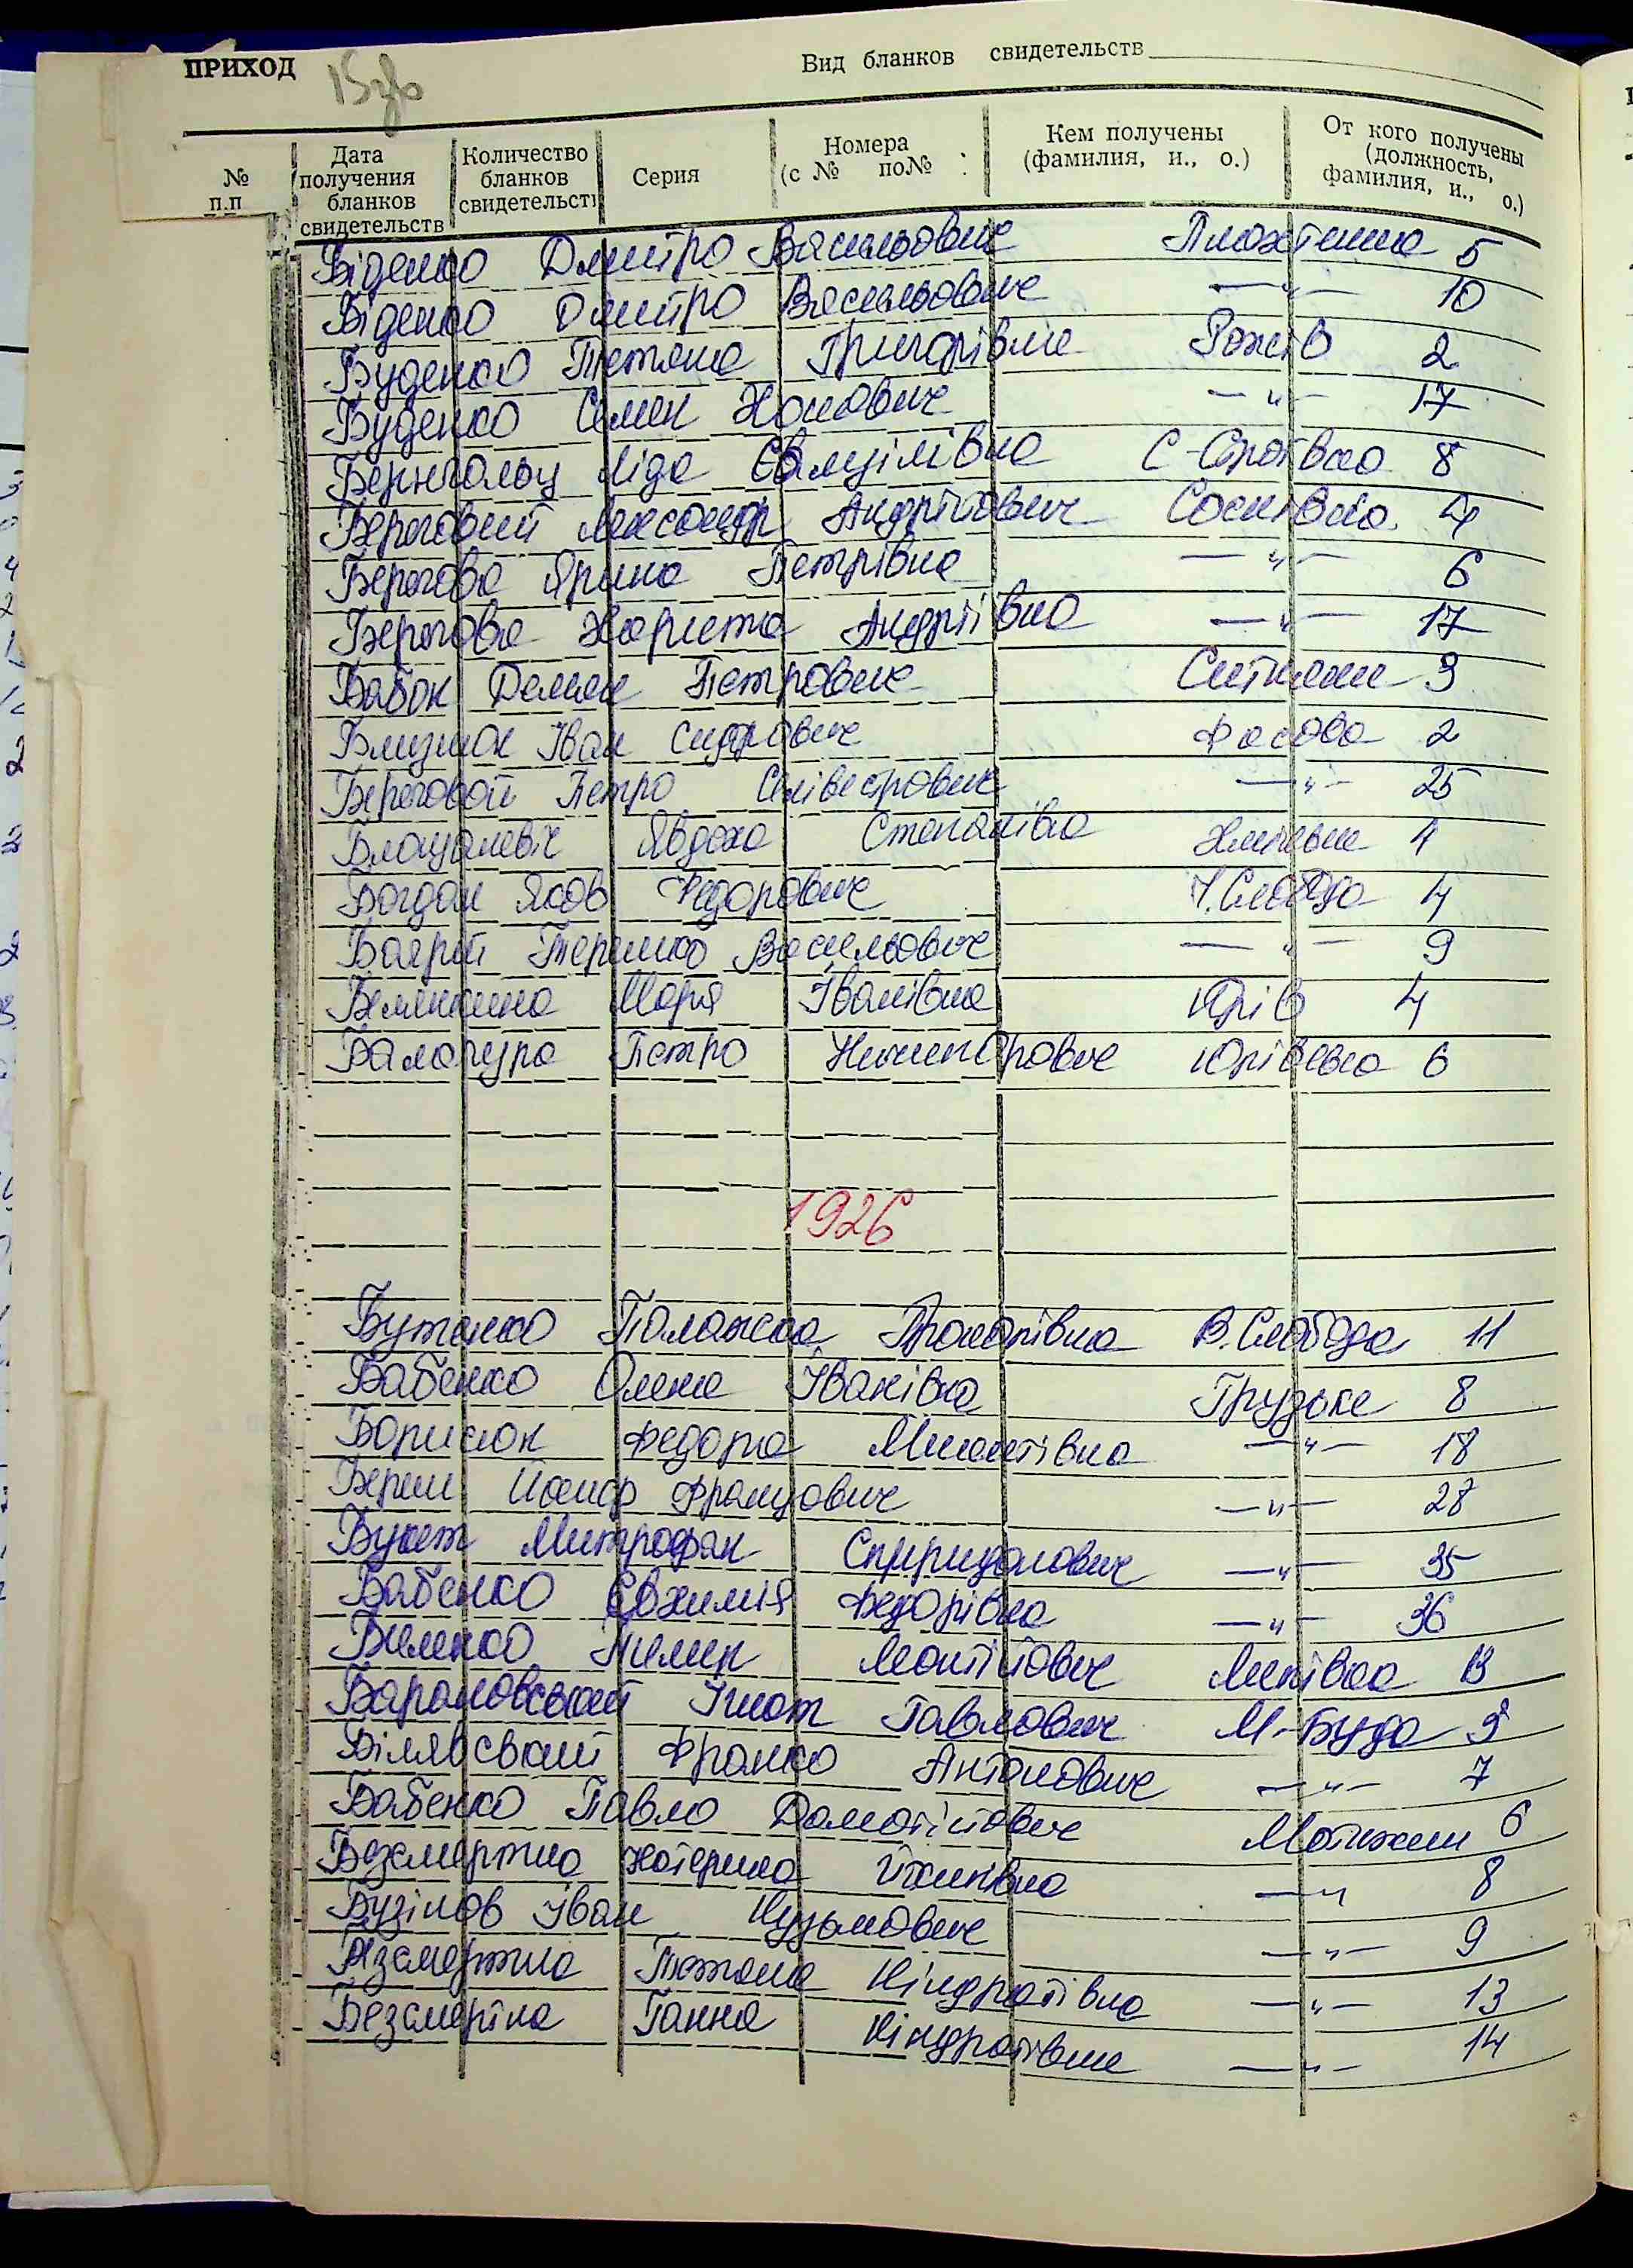 ПРИХОД 15зв Вид бланков свидетельств
№ п.п Дата получения бланков свидетельств Количество бланков свидетельств Серия Номера (с № по№ Кем получены (фамилия, и., о.) От кого получены (должность, фамилия, и., о.)
Біденко Дмитро Васильович 5
Біденко Дмитро Васильович —"— 10
Буденко Тетяна Григорівне Рожів 2
Буденко Семен Хомович —"— 17
Ліда 8
Береговий Александр Андрійович Соснівка 4
Берегова Ярина Петрівна —"— 6
Берегова Харистна Андріївна —"— 17
Бабок Демян Петрович Ситняки 9
Близнюк Іван Сидрович Фасова 2
Береговой Петро Селівестрович —"— 25
Явдоха Степанівна 4
Богдан Яков Федорович Н.Слобода 4
Терешко Васильович —"— 9
Марія Іванівна Юрів 4
Балагура Петро Никинорович Юрівка 6
1926
Бутенко Палажка Прокопівна В.Слобода 11
Бабенко Олена Іванівна Грузьке 8
Борисюк Федора Микитівна —"— 18
Йосиф Францович —"— 28
Букет Митрофан Спиридонович —"— 35
Бабенко Євхимія Федорівна —"— 36
Пилип Липівка 13
Барановський Гнат Павлович М-Буда 9
Білявський Франко Антонович —"— 7
Бабенко Павло Мотижин 6
Безсмертна Катерина —"— 8
Бузінов Іван Кузьмович —"— 9
Безсмертна Тетяна Кіндратівна —"— 13
Безсмертна Ганна Кіндратівне —"— 14